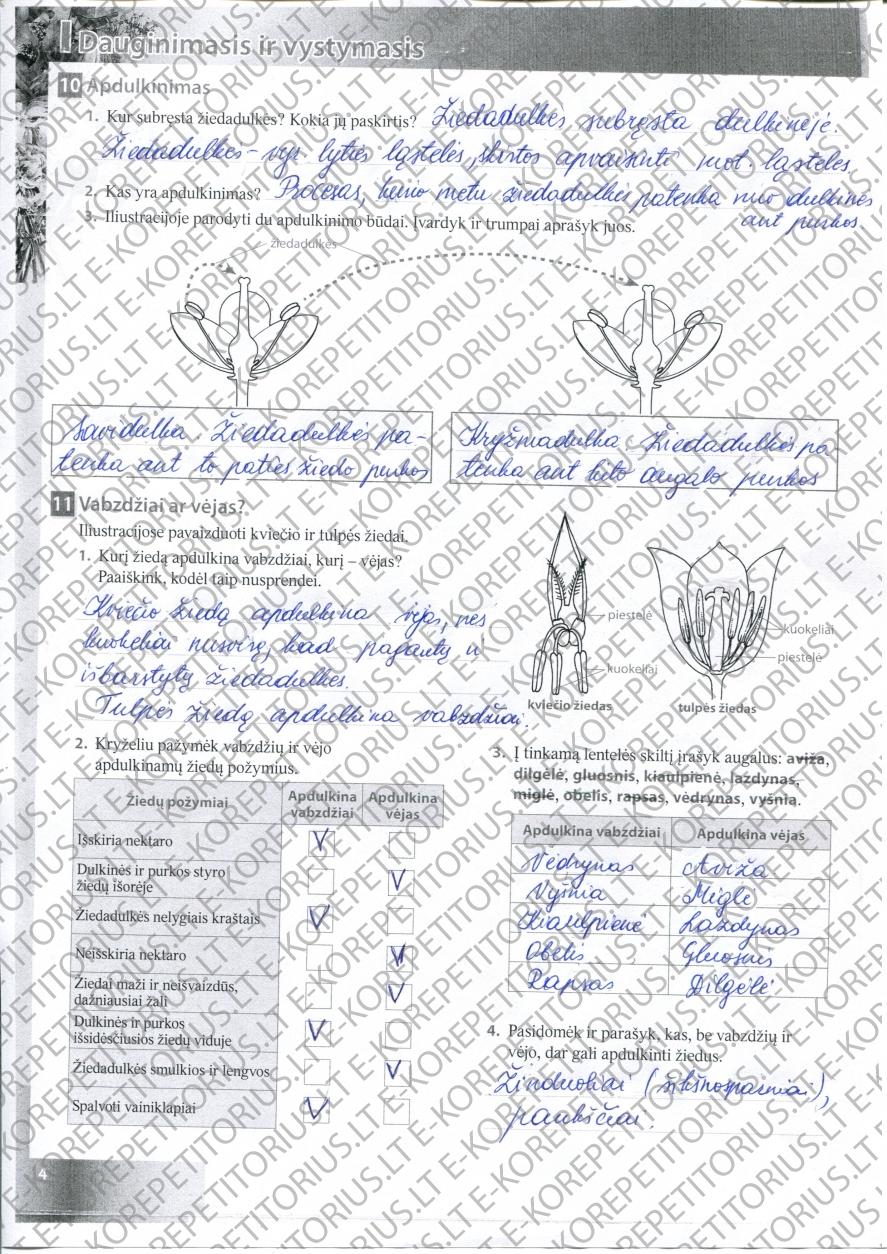 I Dauginimasis ir vystymasis
10 Apdulkinimas
1. Kur subręsta žiedadulkės? Kokia jų paskirtis? Žiedadulkės subręsta dulkinėje.
Žiedadulkės – vyr. lyties ląstelės, skirtos apvaisinti mot. ląsteles.
2. Kas yra apdulkinimas? Procesas, kurio metu žiedadulkės patenka nuo dulkinės
aut purkos.
3. Iliustracijoje parodyti du apdulkinimo būdai. Įvardyk ir trumpai aprašyk juos.
žiedadulkės
Savidulka Žiedadulkės pa-
tenka ant to paties žiedo purkos
Kryžmadulka Žiedadulkės pa-
tenka ant kito augalo purkos
11 Vabzdžiai ar vėjas?
Iliustracijose pavaizduoti kviečio ir tulpės žiedai.
1. Kurį žiedą apdulkina vabzdžiai, kurį – vėjas?
Paaiškink, kodėl taip nusprendei.
Kviečio žiedą apdulkina vėjas, nes
kuokeliai nusvirę, kad pagautų ir
išbarstytų žiedadulkes.
Tulpės žiedą apdulkina vabzdžiai.
piestelė
kuokeliai
kviečio žiedas
kuokeliai
piestelė
tulpės žiedas
2. Kryželiu pažymėk vabzdžių ir vėjo
apdulkinamų žiedų požymius.
Žiedų požymiai Apdulkina vabzdžiai Apdulkina vėjas
Išskiria nektaro V
Dulkinės ir purkos styro
žiedų išorėje V
Žiedadulkės nelygiais kraštais V
Neišskiria nektaro V
Žiedai maži ir neišvaizdūs,
dažniausiai žali V
Dulkinės ir purkos
išsidėsčiusios žiedų viduje V
Žiedadulkės smulkios ir lengvos V
Spalvoti vainiklapiai V
3. Į tinkamą lentelės skiltį įrašyk augalus: aviža,
dilgėlė, gluosnis, kiaulpienė, lazdynas,
miglė, obelis, rapsas, vėdrynas, vyšnia.
Apdulkina vabzdžiai Apdulkina vėjas
Vėdrynas Aviža
Vyšnia Miglė
Kiaulpienė Lazdynas
Obelis Gluosnis
Rapsas Dilgėlė
4. Pasidomėk ir parašyk, kas, be vabzdžių ir
vėjo, dar gali apdulkinti žiedus.
Žinduoliai (šikšnosparniai),
paukščiai.
4
E-KOREPETITORIUS.LT